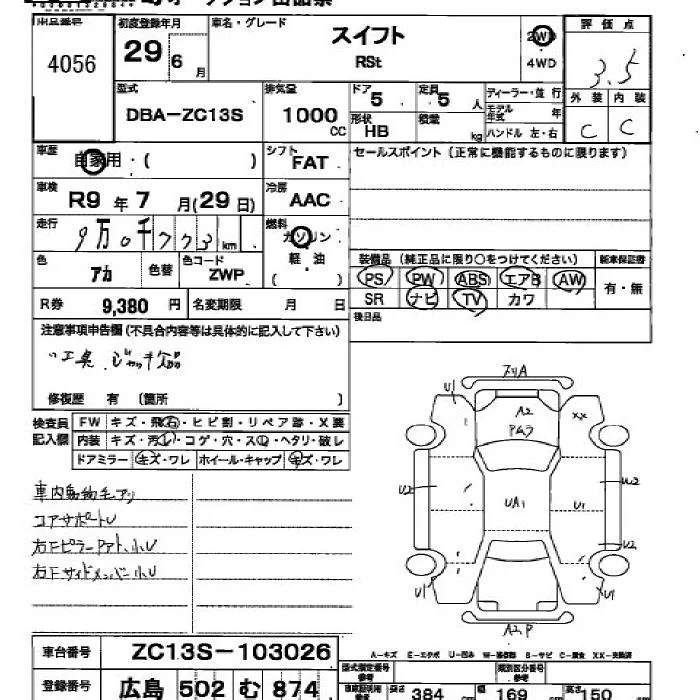 出品番号 初度登録年月 車名・グレード 評価点
4056 29年6月 スイフト 2WD 3.5
RSt 4WD
型式 排気量 ドア 定員 ディーラー・並行 外装 内装
DBA-ZC13S 1000cc 5 5人 モデル年式 年 C C
形状 HB 積載 kg ハンドル 左・右
車歴 自家用・( ) シフト FAT セールスポイント (正常に機能するものに限ります)
車検 R9年7月(29日) 冷房 AAC
走行 9万0千773km 燃料 ガソリン・軽油( )
装備品 (純正品に限り○をつけてください) 新車保証書
色 アカ 色替 色コード ZWP
PS PW ABS エアB AW 有・無
SR ナビ TV カワ
R券 9,380円 名変期限 月 日
後日品
注意事項申告欄(不具合内容等は具体的に記入して下さい)
工具、ジャッキ
修復歴 有 (箇所 )
検査員記入欄 FW キズ・飛石・ヒビ割・リペア跡・X要
内装 キズ・汚レ・コゲ・穴・スレ・ヘタリ・破レ
ドアミラー キズ・ワレ ホイール・キャップ キズ・ワレ
車内動物毛アリ
コアサポートU
右Fピラー 小U
右Fサイドメンバー小U
U1 A2 XX
U2 UA1 U2
U1 U2
U1 U1
A2,P
車台番号 ZC13S-103026
A-キズ E-エクボ U-凹み W-補修跡 S-サビ C-腐食 XX-交換済
登録番号 広島 502 む 874
型式指定番号 参考 類別区分番号 参考
車庫証明用 参考 長さ 384 cm 幅 169 cm 高さ 150 cm